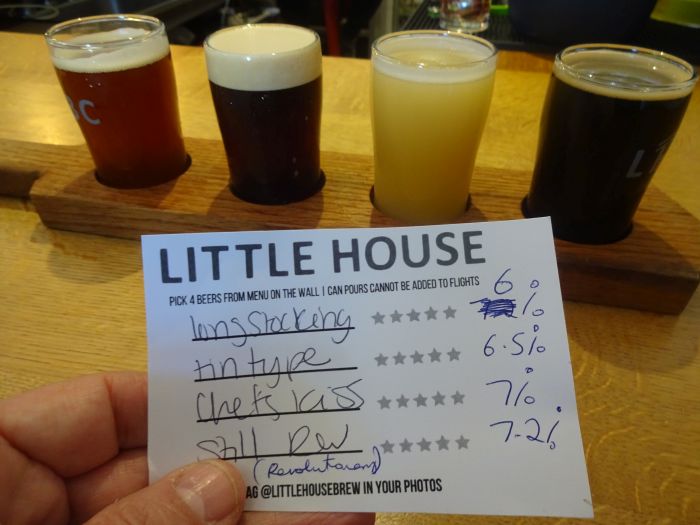 BC
LI
LITTLE HOUSE
PICK 4 BEERS FROM MENU ON THE WALL | CAN POURS CANNOT BE ADDED TO FLIGHTS
longstocking 6 %
tintype 6.5%
Chefs kiss 7%
Still Rev 7.2%
(Revolutionary)
AG @LITTLEHOUSEBREW IN YOUR PHOTOS